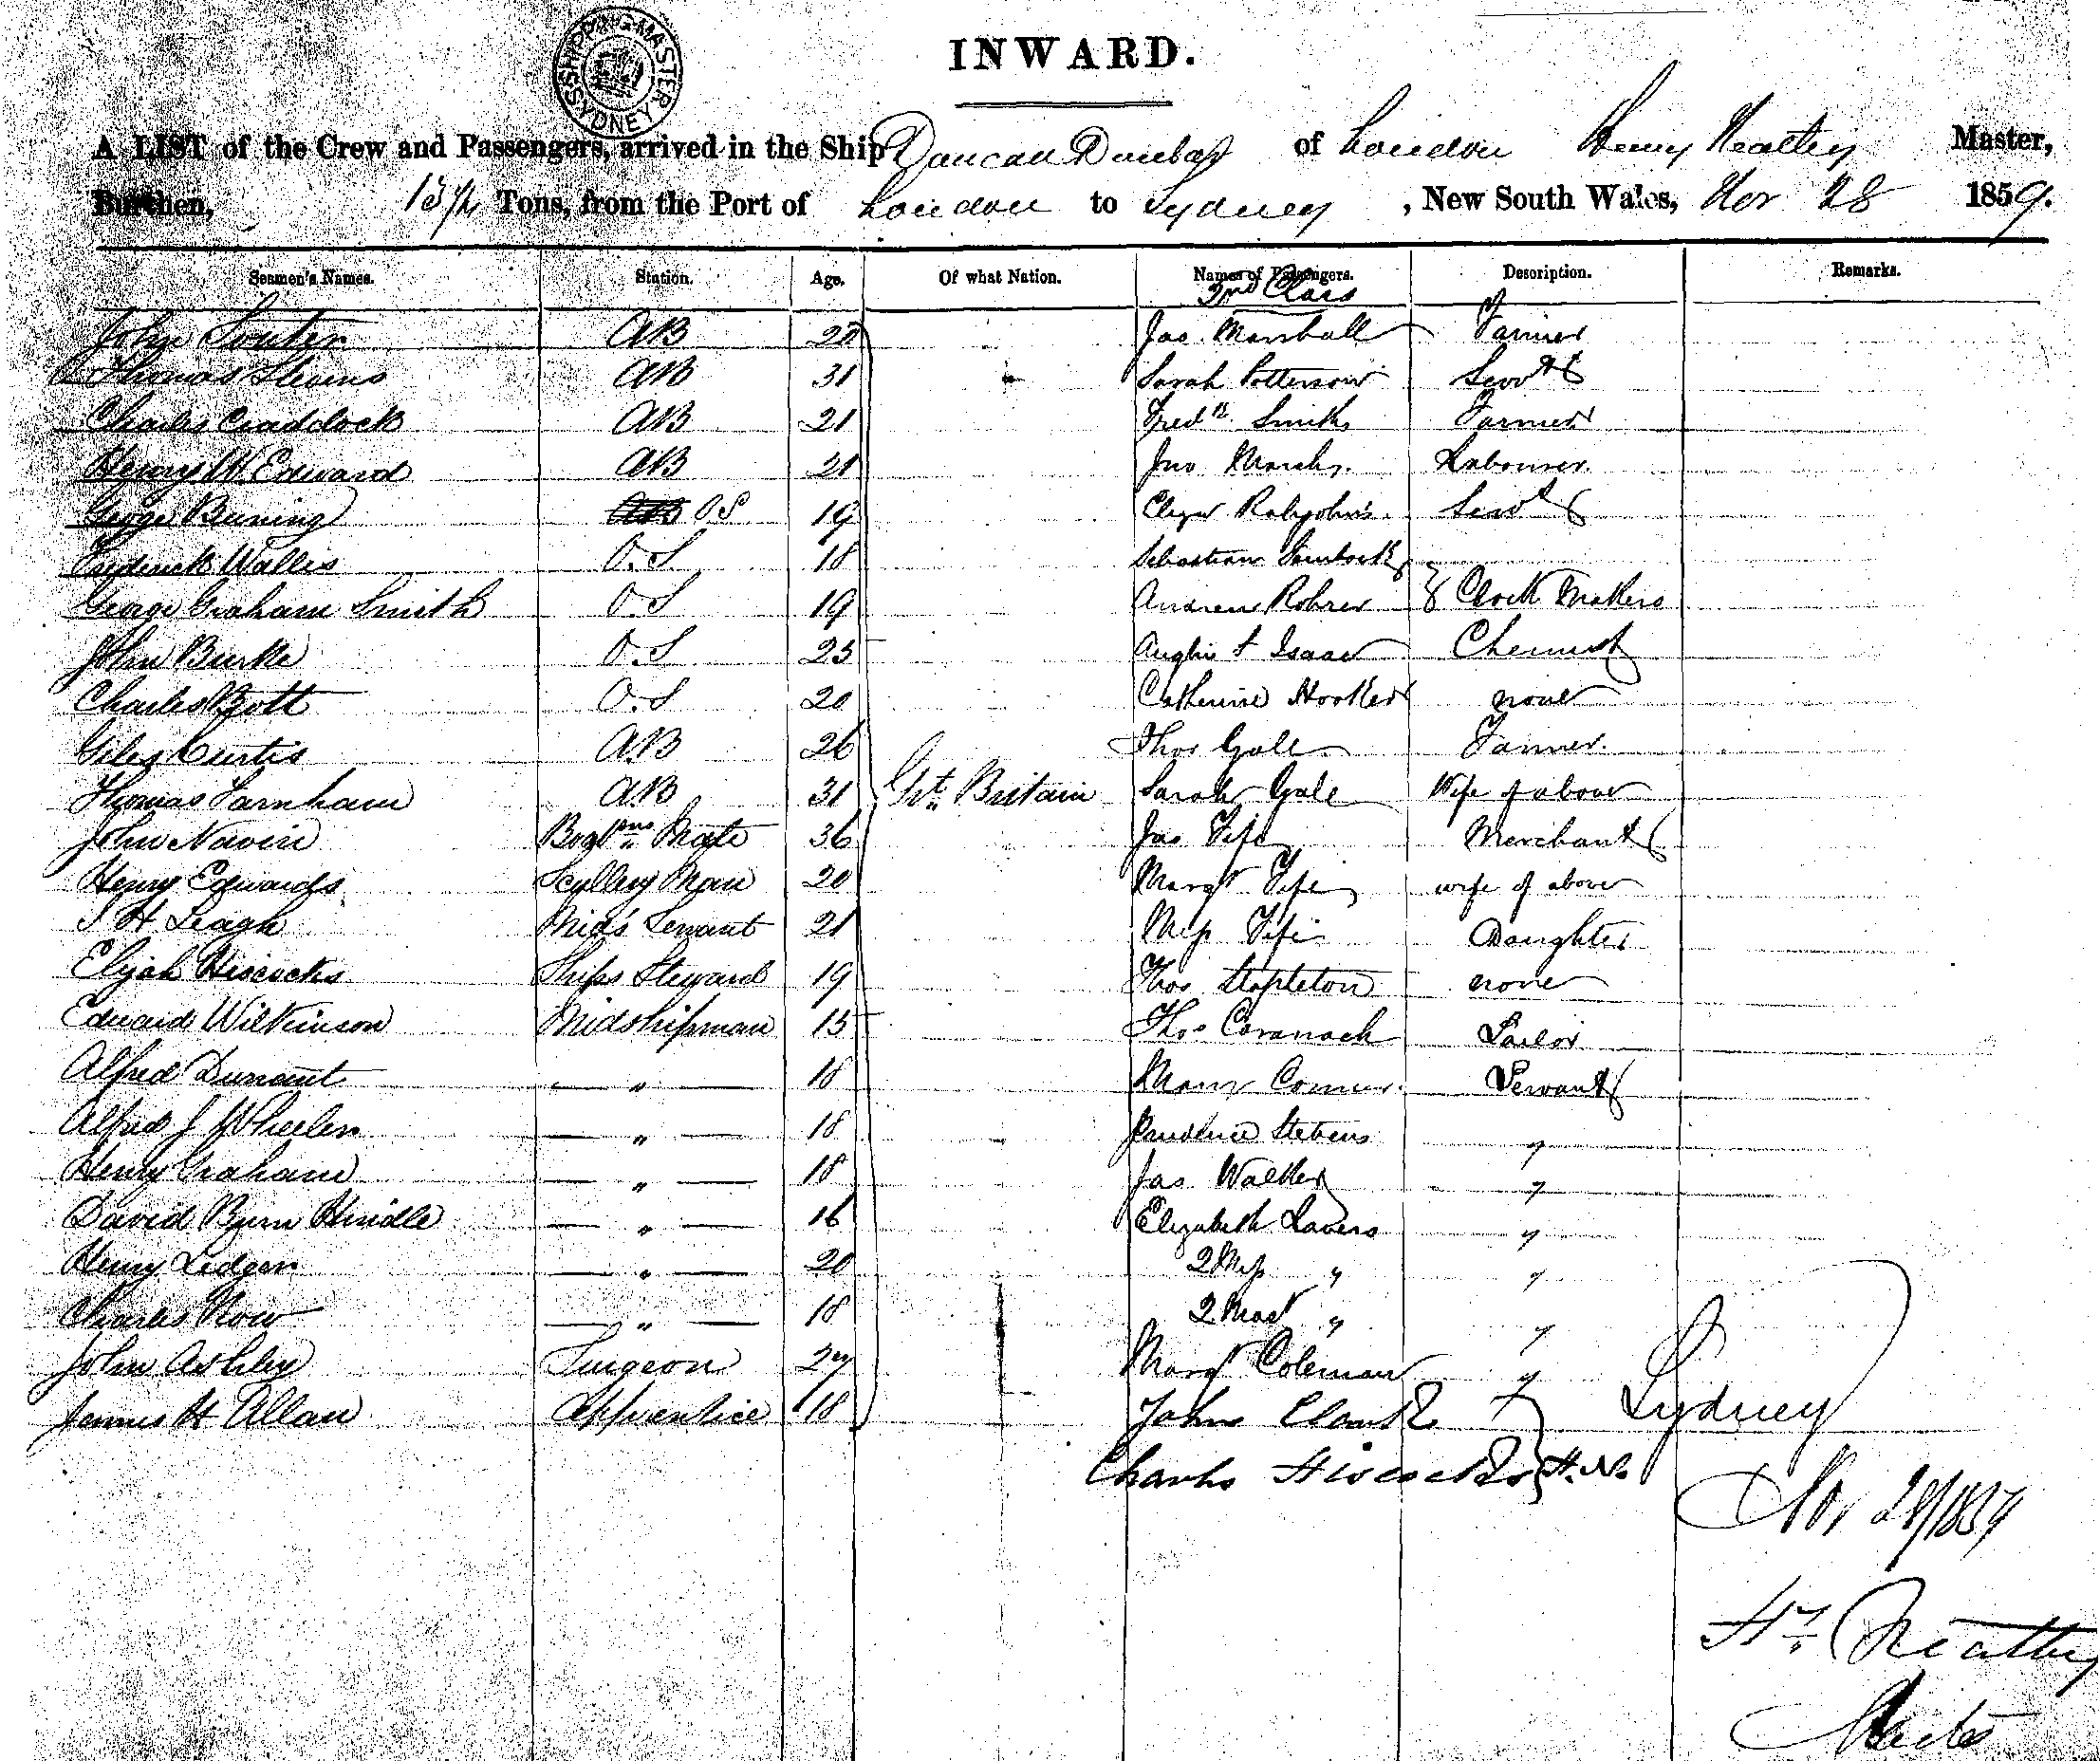 SHIPPING MASTER SYDNEY
INWARD.
A LIST of the Crew and Passengers, arrived in the Ship Duncan Dunbar of London Henry Neatby Master,
Burthen, Tons, from the Port of London to Sydney, New South Wales, Nov 28 1859.
Seamen's Names. Station. Age. Of what Nation. Names of Passengers. Description. Remarks.
2nd Class
John Souter AB Jas. Marshall Farmer
Thomas Stevens AB 31 Sarah Patterson Servt
Charles Craddock AB 21 Fredk Smith Farmer
Henry W. Edward AB 21 Jno Marsh Labourer
George Buning OS 19 Servt
Frederick Wallis O.S 18 Sebastian
George Graham Smith O.S 19 Andrew Rohrer Clock Makers
John Burke O.S 25 Isaac Chemist
Charles Bott O.S 20 Catherine Hooker none
Giles Curtis AB 26 Thos Gale Farmer
Thomas Farnham AB 31 Gt. Britain Sarah Gale Wife of above
John Navin Boatns Mate 36 Jas Fife Merchant
Henry Edwards Scullery Man 20 Margt Fife wife of above
Leagh Mid's Servant 21 Miss Fife Daughter
Elijah Hiscocks Ships Steward 19 Thos Stapleton none
Edward Wilkinson Midshipman 15 Thos Cavanach Sailor
Alfred Durrant " 18 Mary Servant
Alfred J Wheeler " 18 Prudence Stevens "
Henry Graham " 18 Jas Walker "
David Byrn Hindle " 16 Elizabeth Lavers "
Henry Ledger " 20 2 Miss " "
Charles Row " 18 2 Mast " "
John Ashley Surgeon 27 Margt Coleman "
James H Allan Apprentice 18 John Clark " Sydney
Charles Hiscocks H.N.
Nov 28/1859
Hy Neatby